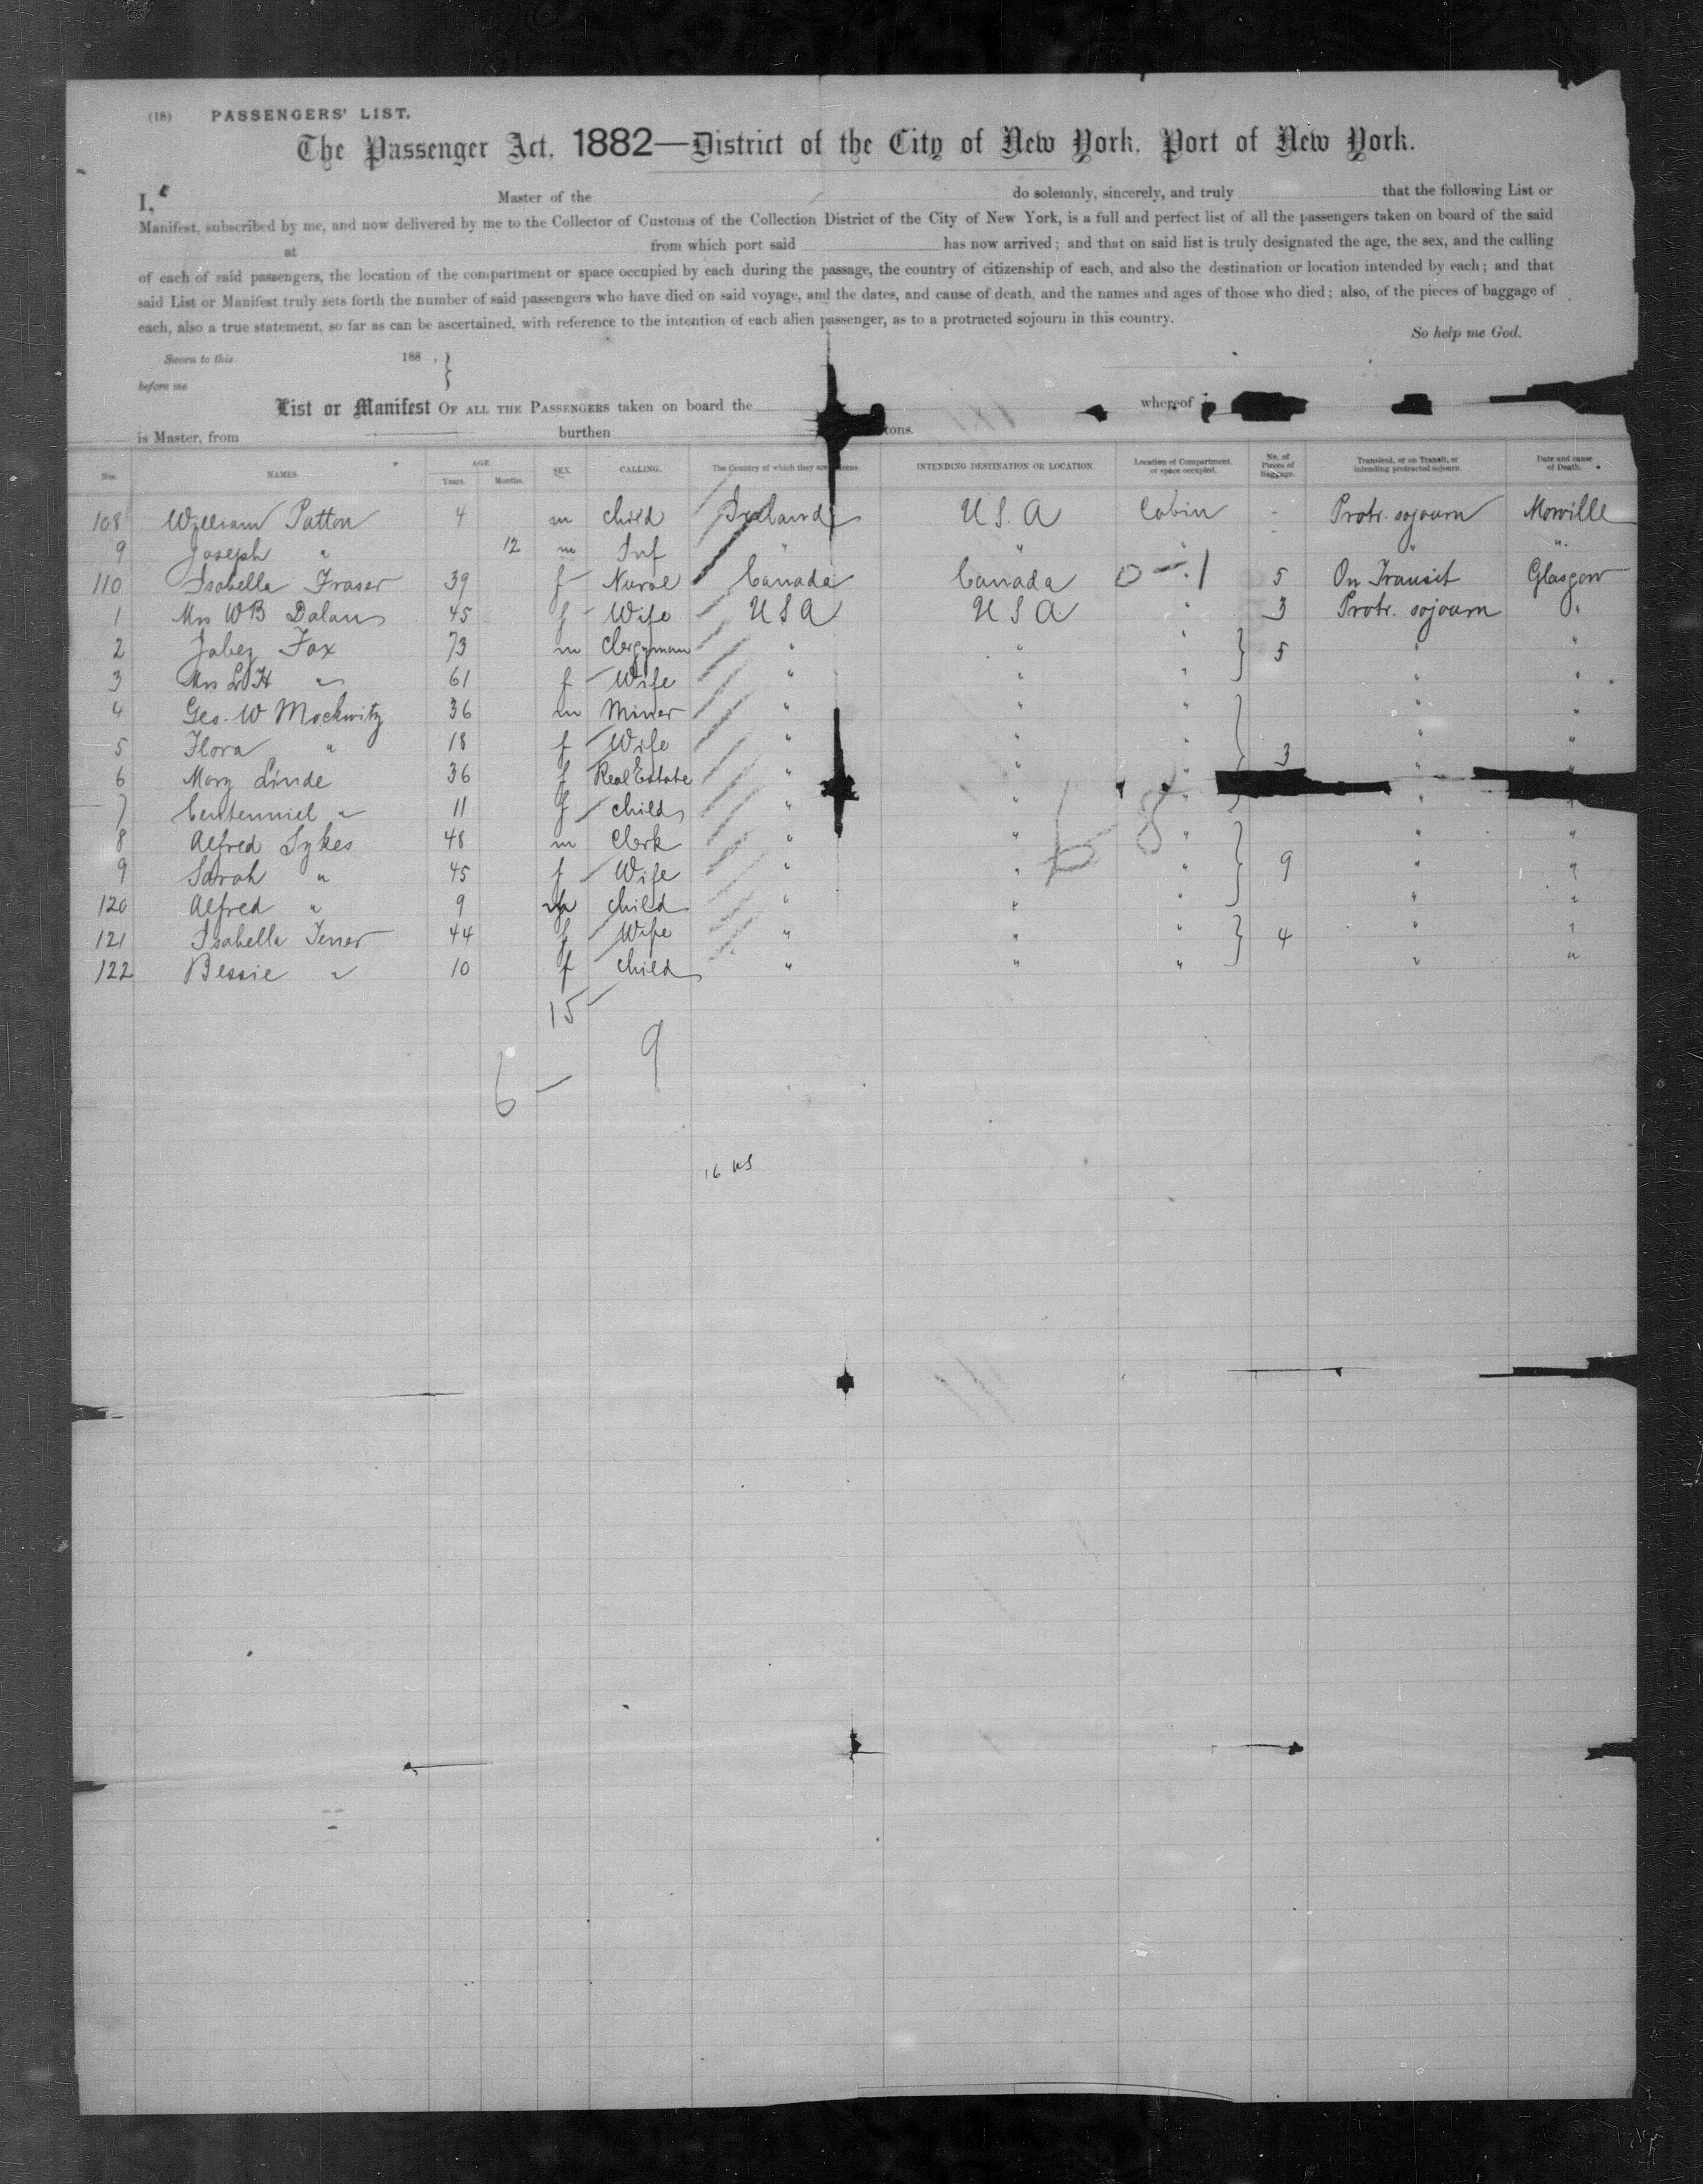 (18) PASSENGERS' LIST.
The Passenger Act, 1882—District of the City of New York, Port of New York.
I, Master of the do solemnly, sincerely, and truly that the following List or
Manifest, subscribed by me, and now delivered by me to the Collector of Customs of the Collection District of the City of New York, is a full and perfect list of all the passengers taken on board of the said
at from which port said has now arrived; and that on said list is truly designated the age, the sex, and the calling
of each of said passengers, the location of the compartment or space occupied by each during the passage, the country of citizenship of each, and also the destination or location intended by each; and that
said List or Manifest truly sets forth the number of said passengers who have died on said voyage, and the dates, and cause of death, and the names and ages of those who died; also, of the pieces of baggage of
each, also a true statement, so far as can be ascertained, with reference to the intention of each alien passenger, as to a protracted sojourn in this country.
So help me God.
Sworn to this 188 , }
before me
List or Manifest OF ALL THE PASSENGERS taken on board the whereof
is Master, from burthen tons.
Nos. NAMES. AGE Years. Months. SEX. CALLING. The Country of which they are citizens. INTENDING DESTINATION OR LOCATION. Location of Compartment, or space occupied. No. of Pieces of Baggage. Transient, or on Transit, or intending protracted sojourn. Date and cause of Death.
108 William Patton 4 m child Ireland U.S.A Cabin - Protr. sojourn Moville
9 Joseph " 12 m Inf " " " - " "
110 Isabella Fraser 39 f Nurse Canada Canada 0 - 1 " 5 On Transit Glasgow
1 Mrs W B Dolan 45 f Wife U S A U S A " 3 Protr. sojourn "
2 Jabez Fox 73 m Clergyman " " " } 5 " "
3 Mrs " 61 f Wife " " " " "
4 Geo. W Mockwitz 36 m Miner " " " } " "
5 Flora " 18 f Wife " " " 3 " "
6 Mary Linde 36 f Real Estate " " " " "
7 Centenniel " 11 f child " " " " "
8 Alfred Sykes 48 m Clerk " " 6-8 " } 9 " "
9 Sarah " 45 f Wife " " " " "
120 Alfred " 9 m child " " " " "
121 Isabella Tener 44 f Wife " " " } 4 " "
122 Bessie " 10 f child " " " " "
15
9
6 -
16 US